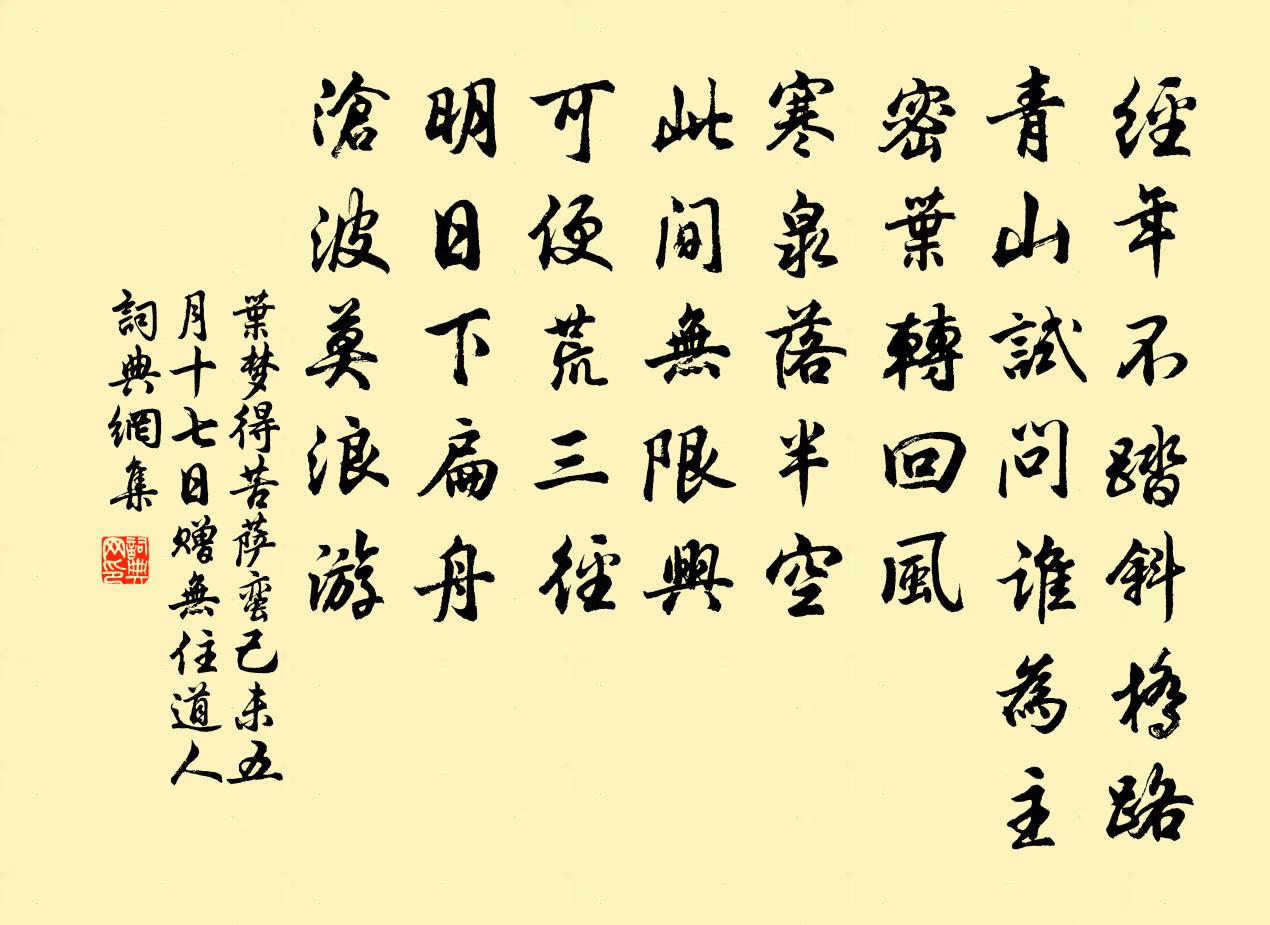 經年不踏斜橋路
青山試問誰為主
密葉轉回風
寒泉落半空
此間無限興
可便荒三徑
明日下扁舟
滄波莫浪游
葉梦得菩萨蛮己未五
月十七日赠無住道人
詞典網集
詞典
网印